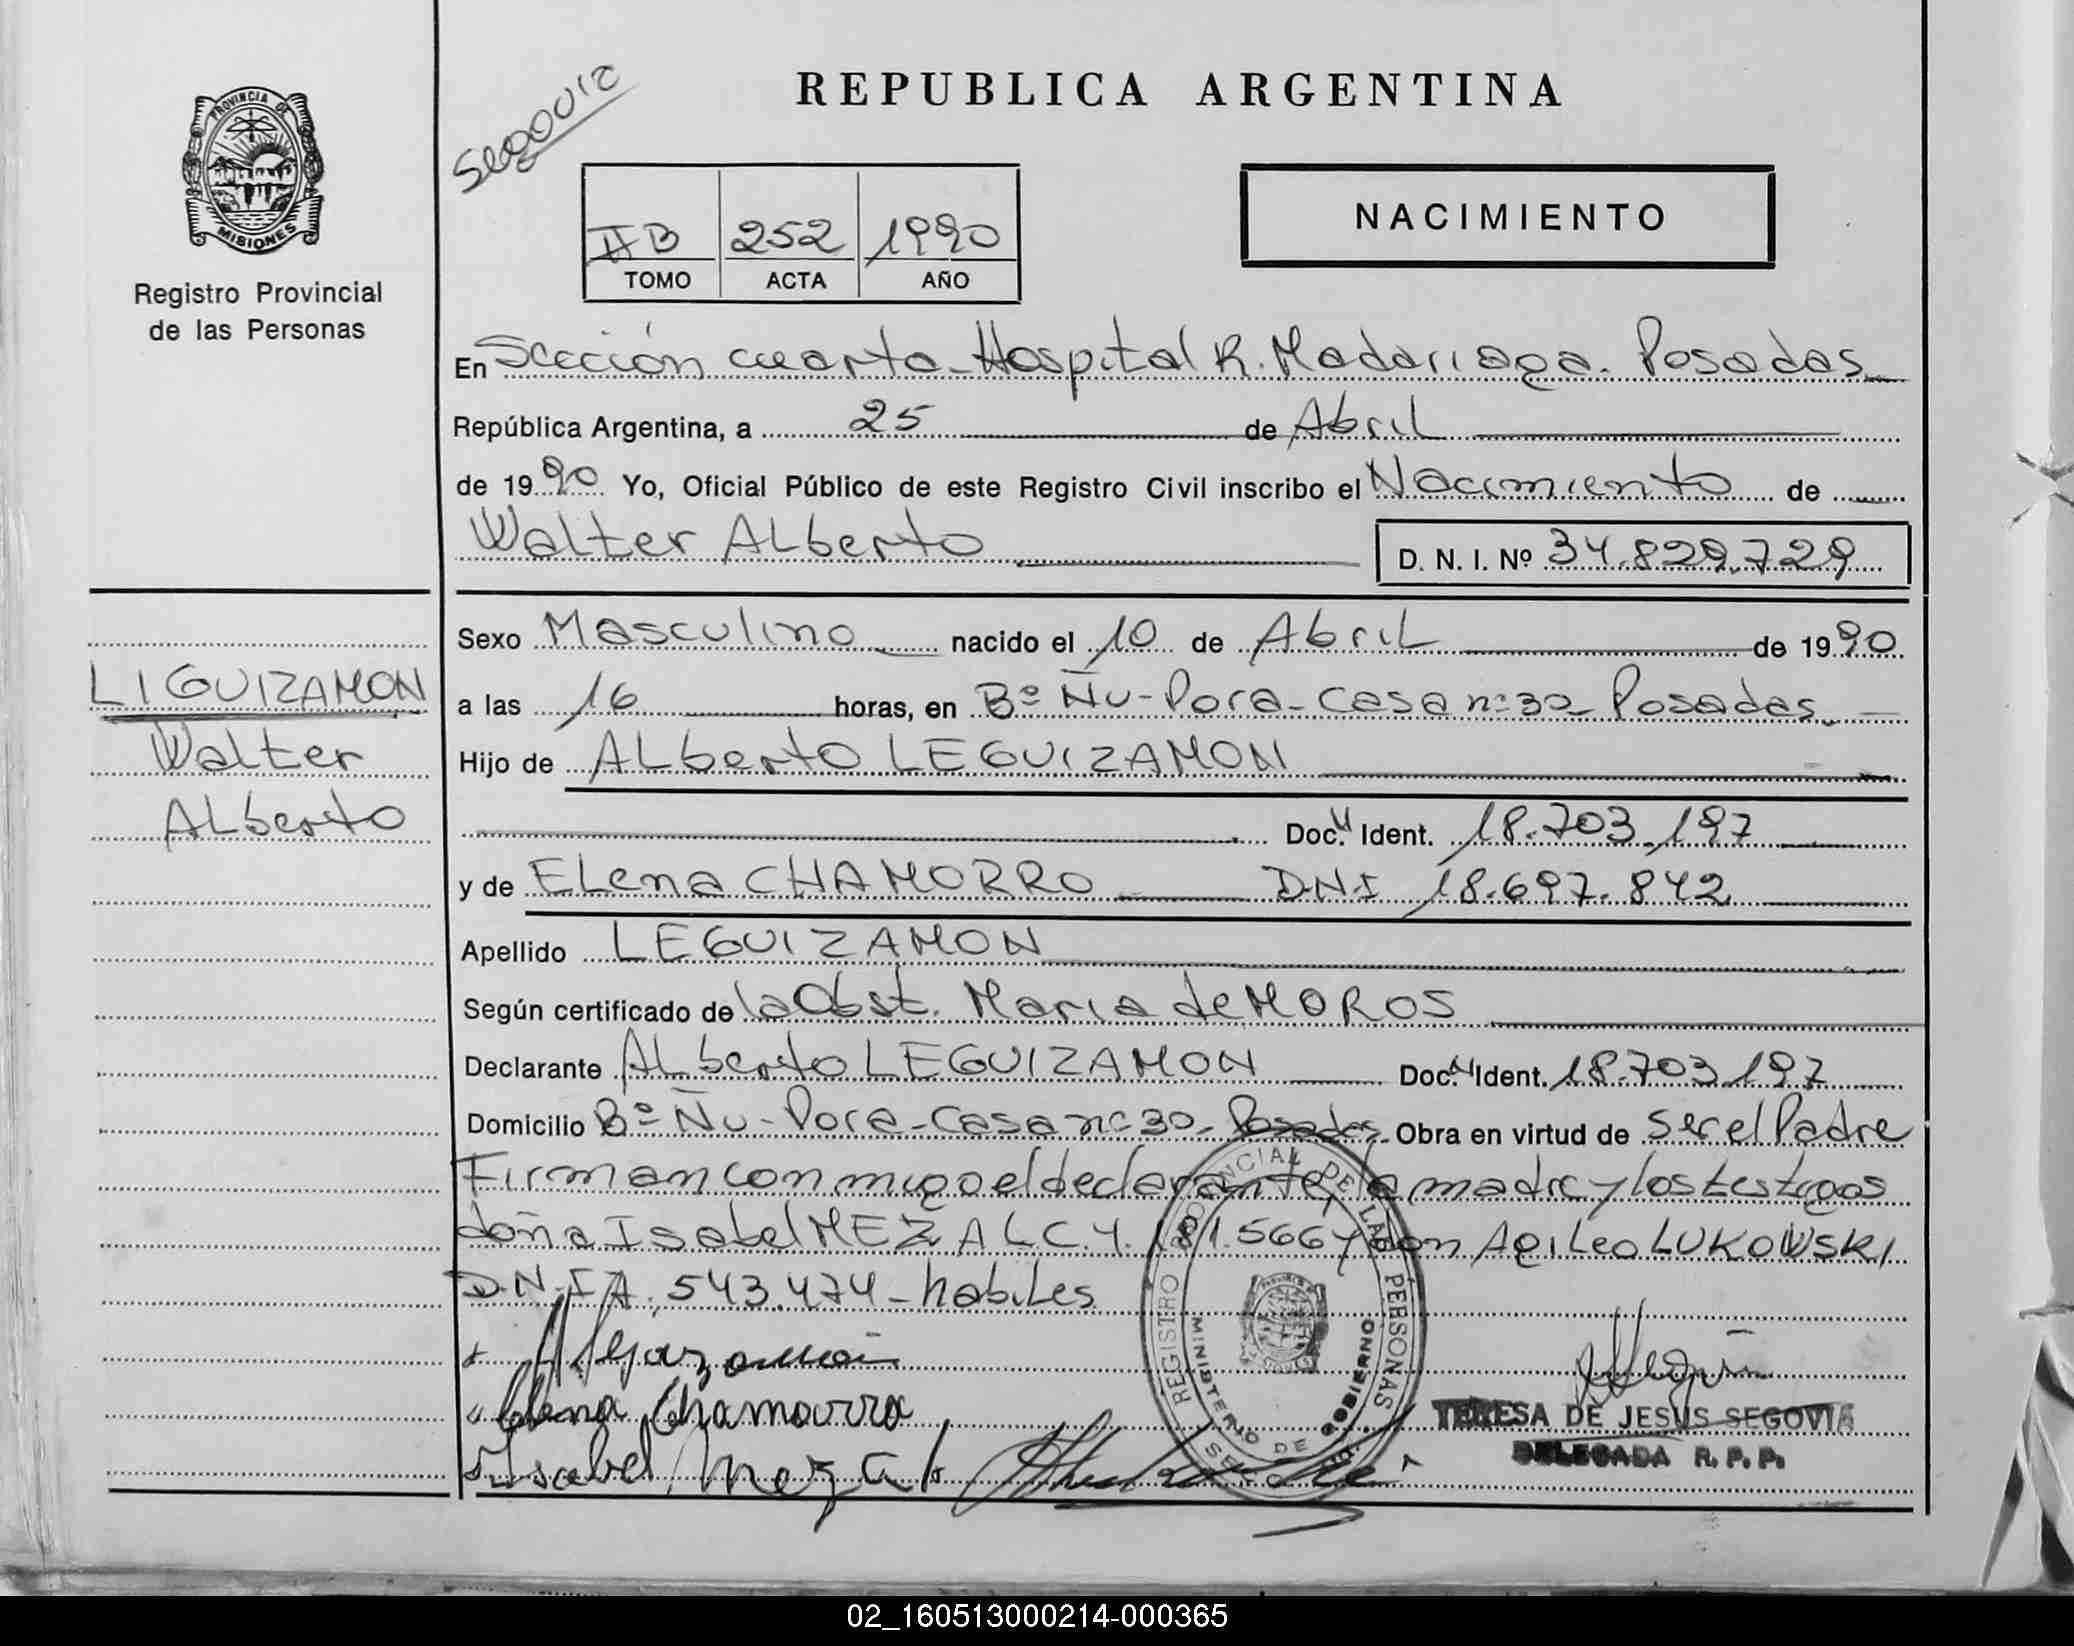 PROVINCIA DE
MISIONES
Registro Provincial
de las Personas
LIGUIZAMON
Walter
Alberto
REPUBLICA ARGENTINA
II B 252 1990
TOMO ACTA AÑO
NACIMIENTO
En Sección cuarta - Hospital R. Madariaga. Posadas
República Argentina, a 25 de Abril
de 1990 Yo, Oficial Público de este Registro Civil inscribo el Nacimiento de
Walter Alberto D. N. I. Nº 34.829.729
Sexo Masculino nacido el 10 de Abril de 1990
a las 16 horas, en Bº Ñu-Pora - Casa nº 30 - Posadas
Hijo de Alberto LEGUIZAMON
Doc. Ident. 18.703.197
y de Elena CHAMORRO D.N.I 18.697.842
Apellido LEGUIZAMON
Según certificado de la Obst. Maria de MOROS
Declarante Alberto LEGUIZAMON Doc. Ident. 18.703.197
Domicilio Bº Ñu-Pora - Casa nº 30 - Posadas Obra en virtud de ser el Padre
Firman conmigo el declarante, la madre y los testigos
doña Isabel MEZA L.C. 4.181.566 y don Agileo LUKOWSKI
D.N.I 7.543.474 - habiles
Elena Chamorro
Isabel Meza
REGISTRO PROVINCIAL DE LAS PERSONAS
MINISTERIO DE GOBIERNO
TERESA DE JESUS SEGOVIA
DELEGADA R. P. P.
02_160513000214-000365